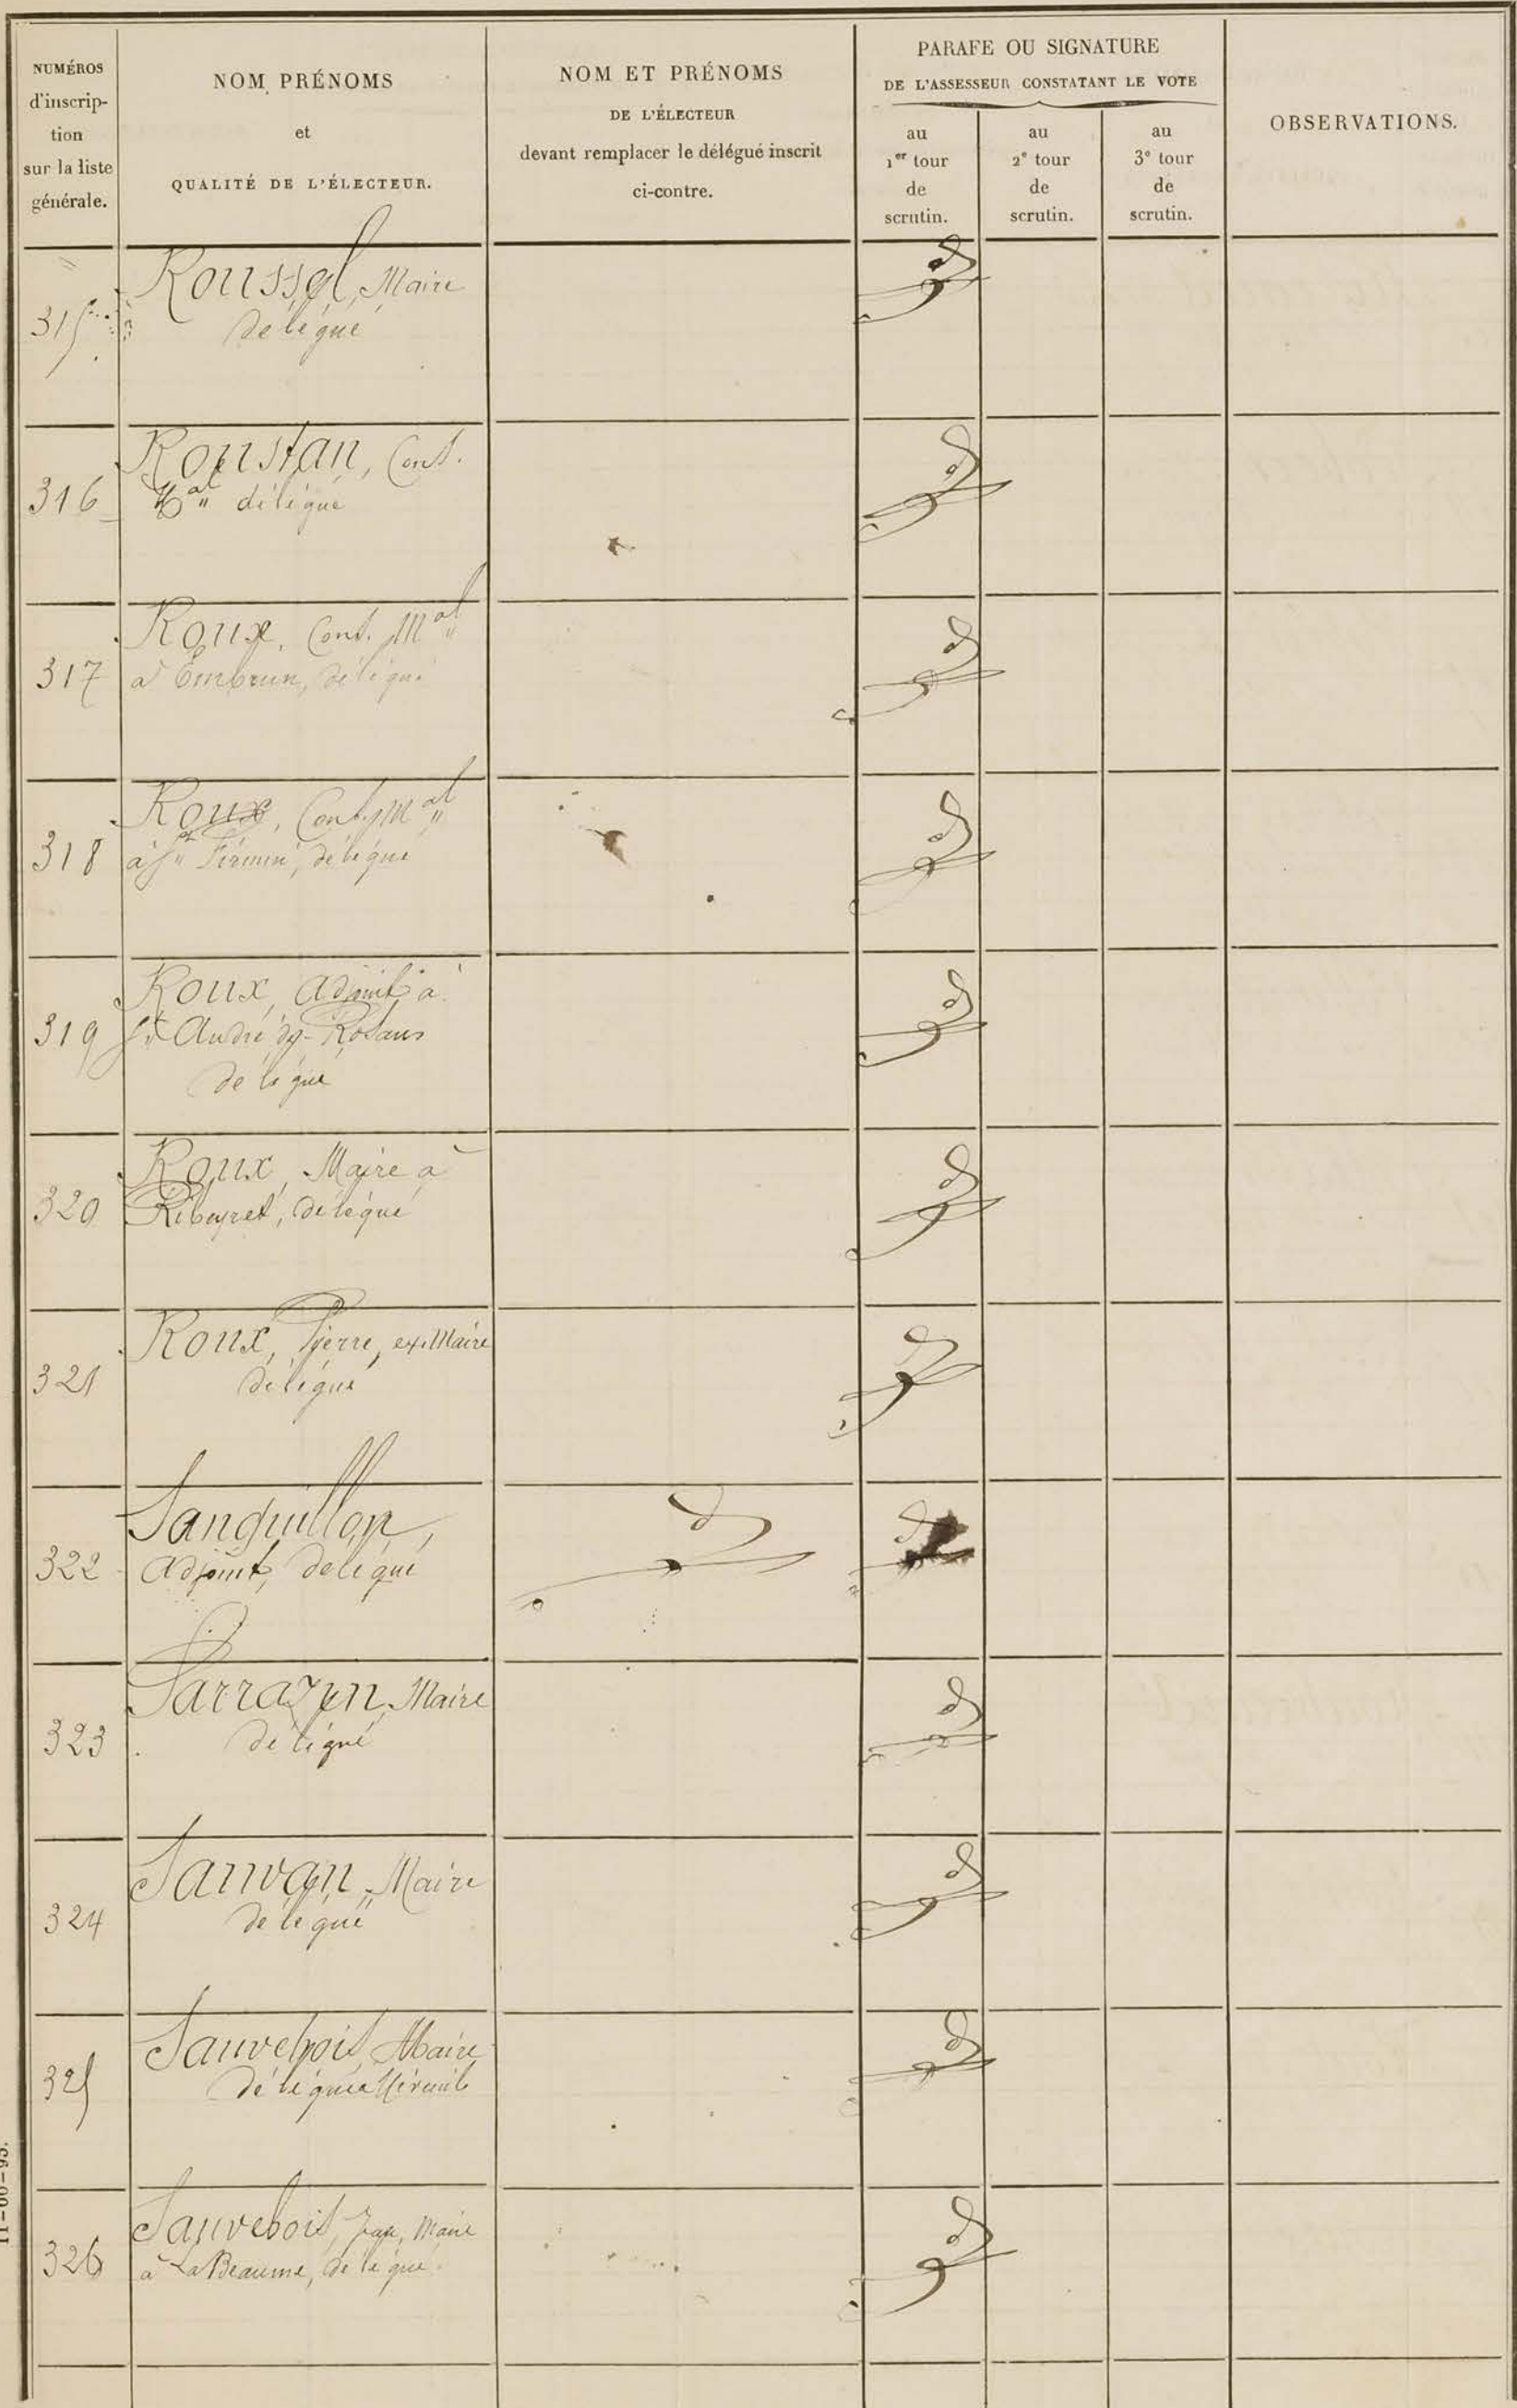 NUMÉROS
d'inscrip-
tion
sur la liste
générale.
NOM, PRÉNOMS
et
QUALITÉ DE L'ÉLECTEUR.
NOM ET PRÉNOMS
DE L'ÉLECTEUR
devant remplacer le délégué inscrit
ci-contre.
PARAFE OU SIGNATURE
DE L'ASSESSEUR CONSTATANT LE VOTE
au
1er tour
de
scrutin.
au
2e tour
de
scrutin.
au
3e tour
de
scrutin.
OBSERVATIONS.
315
Roussel, Maire
délégué
316
Roustan, Cons.
Mal délégué
317
Roux, Cons. Mal
à Embrun, délégué
318
Roux, Cons. Mal
à St Firmin, délégué
319
Roux, adjoint à
St André de Rosans
délégué
320
Roux, Maire à
Ribeyret, délégué
321
Roux, Pierre, ex-Maire
délégué
322
Sanguillon,
adjoint, délégué
323
Sarrazin, Maire
délégué
324
Sauvan, Maire
délégué
325
Sauvebois, Maire
délégué
326
Sauvebois, Jean, Maire
à La Beaume, délégué